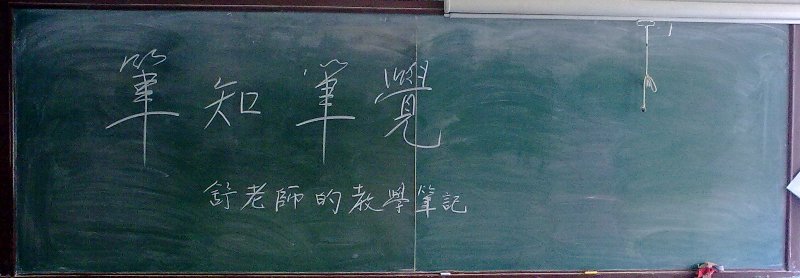 筆知筆覺
舒老師的教學筆記